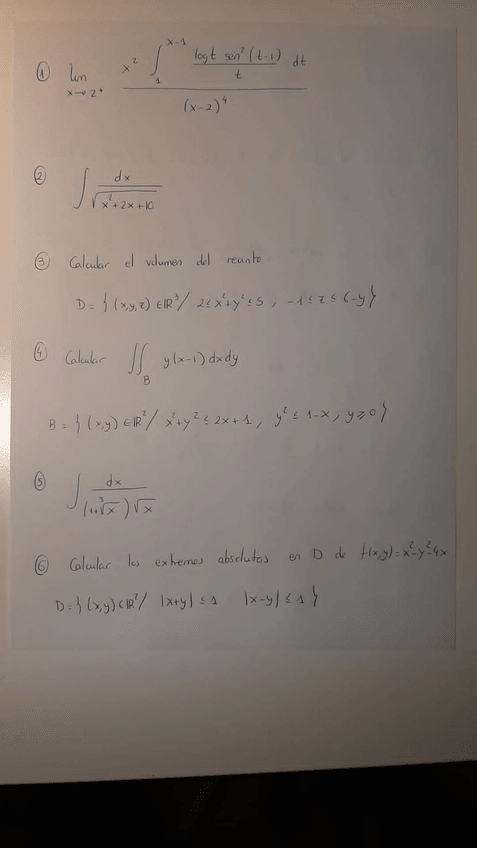 ① lim x→2⁺ x² ∫₁ˣ⁻¹ logt sen²(t-1)/t dt / (x-2)⁴
② ∫ dx/√(x²+2x+10)
③ Calcular el volumen del recinto
D = { (x,y,z) ∈ℝ³/ 2≤x²+y²≤5 , -1≤z≤6-y}
④ Calcular ∬_B y(x-1) dxdy
B = { (x,y) ∈ℝ²/ x²+y² ≤ 2x+1 , y² ≤ 1-x , y≥0 }
⑤ ∫ dx/((1+∛x)√x)
⑥ Calcular los extremos absolutos en D de f(x,y)=x²-y²-4x
D={ (x,y)∈ℝ²/ |x+y| ≤ 1 |x-y| ≤ 1 }